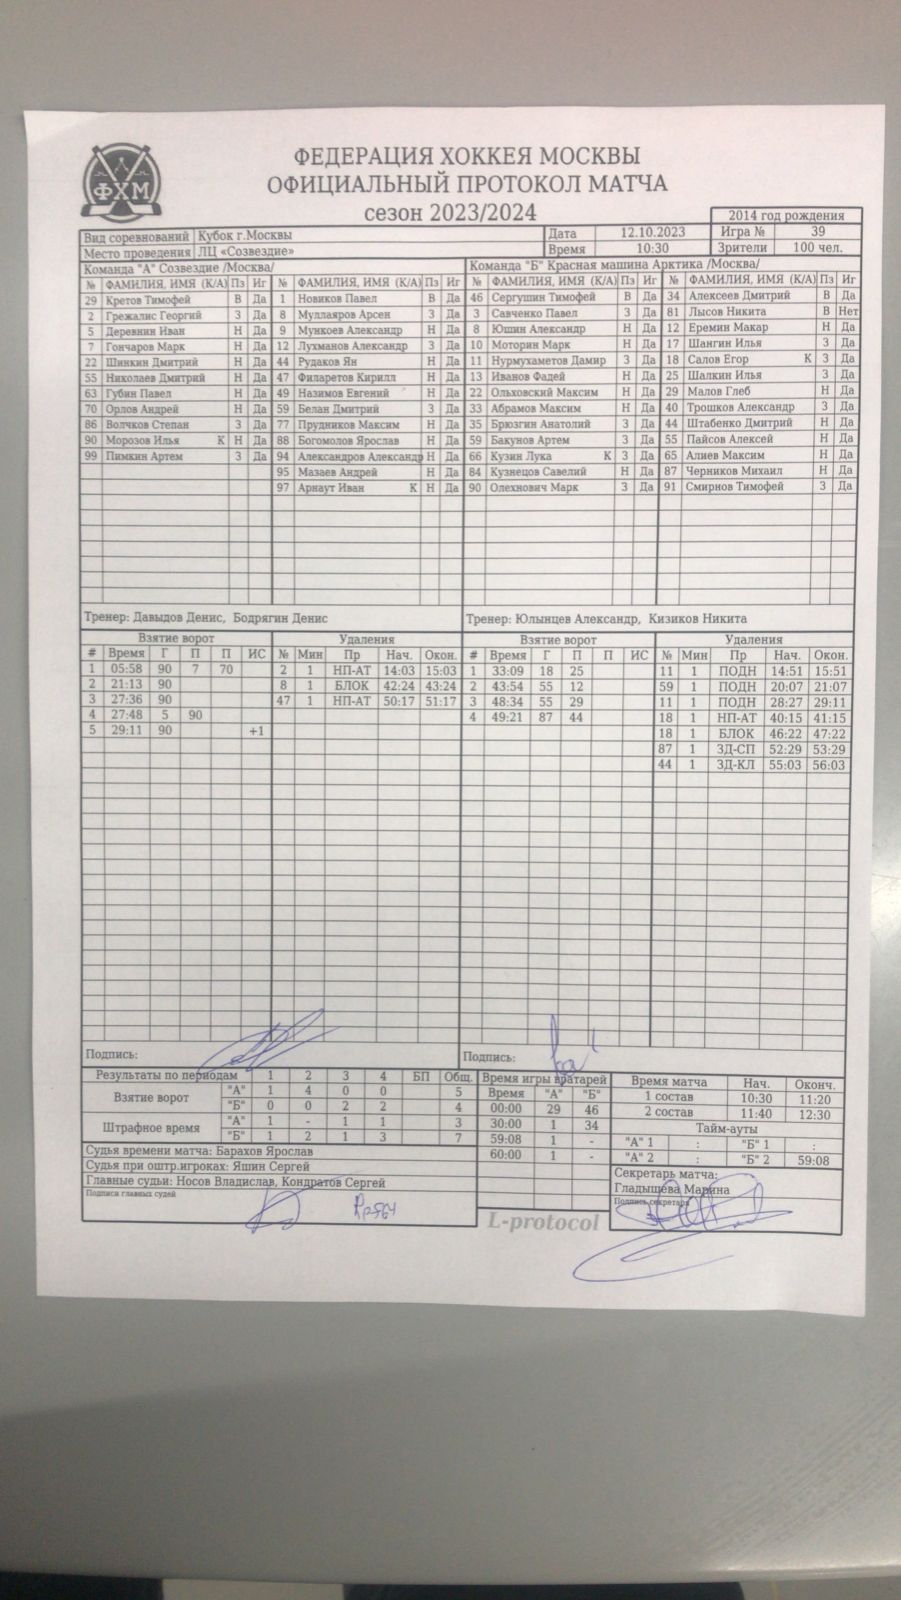 ФХМ
ФЕДЕРАЦИЯ ХОККЕЯ МОСКВЫ
ОФИЦИАЛЬНЫЙ ПРОТОКОЛ МАТЧА
сезон 2023/2024
2014 год рождения
Вид соревнований Кубок г.Москвы Дата 12.10.2023 Игра № 39
Место проведения ЛЦ «Созвездие» Время 10:30 Зрители 100 чел.
Команда "А" Созвездие /Москва/ Команда "Б" Красная машина Арктика /Москва/
№ ФАМИЛИЯ, ИМЯ (К/А) Пз Иг № ФАМИЛИЯ, ИМЯ (К/А) Пз Иг № ФАМИЛИЯ, ИМЯ (К/А) Пз Иг № ФАМИЛИЯ, ИМЯ (К/А) Пз Иг
29 Кретов Тимофей В Да 1 Новиков Павел В Да 46 Сергушин Тимофей В Да 34 Алексеев Дмитрий В Да
2 Грежалис Георгий З Да 8 Муллаяров Арсен З Да 3 Савченко Павел З Да 81 Лысов Никита В Нет
5 Деревнин Иван Н Да 9 Мункоев Александр Н Да 8 Юшин Александр Н Да 12 Еремин Макар Н Да
7 Гончаров Марк Н Да 12 Лухманов Александр З Да 10 Моторин Марк Н Да 17 Шангин Илья З Да
22 Шинкин Дмитрий Н Да 44 Рудаков Ян Н Да 11 Нурмухаметов Дамир З Да 18 Салов Егор К З Да
55 Николаев Дмитрий Н Да 47 Филаретов Кирилл Н Да 13 Иванов Фадей Н Да 25 Шалкин Илья З Да
63 Губин Павел Н Да 49 Назимов Евгений Н Да 22 Ольховский Максим Н Да 29 Малов Глеб Н Да
70 Орлов Андрей Н Да 59 Белан Дмитрий З Да 33 Абрамов Максим Н Да 40 Трошков Александр З Да
86 Волчков Степан З Да 77 Прудников Максим Н Да 35 Брюзгин Анатолий З Да 44 Штабенко Дмитрий Н Да
90 Морозов Илья К Н Да 88 Богомолов Ярослав Н Да 59 Бакунов Артем З Да 55 Пайсов Алексей Н Да
99 Пимкин Артем З Да 94 Александров Александр Н Да 66 Кузин Лука К З Да 65 Алиев Максим Н Да
95 Мазаев Андрей Н Да 84 Кузнецов Савелий Н Да 87 Черников Михаил Н Да
97 Арнаут Иван К Н Да 90 Олехнович Марк З Да 91 Смирнов Тимофей З Да
Тренер: Давыдов Денис, Бодрягин Денис Тренер: Юлынцев Александр, Кизиков Никита
Взятие ворот Удаления Взятие ворот Удаления
# Время Г П П ИС № Мин Пр Нач. Окон. # Время Г П П ИС № Мин Пр Нач. Окон.
1 05:58 90 7 70 2 1 НП-АТ 14:03 15:03 1 33:09 18 25 11 1 ПОДН 14:51 15:51
2 21:13 90 8 1 БЛОК 42:24 43:24 2 43:54 55 12 59 1 ПОДН 20:07 21:07
3 27:36 90 47 1 НП-АТ 50:17 51:17 3 48:34 55 29 11 1 ПОДН 28:27 29:11
4 27:48 5 90 4 49:21 87 44 18 1 НП-АТ 40:15 41:15
5 29:11 90 +1 18 1 БЛОК 46:22 47:22
87 1 ЗД-СП 52:29 53:29
44 1 ЗД-КЛ 55:03 56:03
Подпись: Подпись:
Результаты по периодам 1 2 3 4 БП Общ. Время игры вратарей Время матча Нач. Оконч.
Взятие ворот "А" 1 4 0 0 5 Время "А" "Б" 1 состав 10:30 11:20
"Б" 0 0 2 2 4 00:00 29 46 2 состав 11:40 12:30
Штрафное время "А" 1 - 1 1 3 30:00 1 34 Тайм-ауты
"Б" 1 2 1 3 7 59:08 1 - "А" 1 : "Б" 1 :
Судья времени матча: Барахов Ярослав 60:00 1 - "А" 2 : "Б" 2 59:08
Судья при оштр.игроках: Яшин Сергей Секретарь матча:
Главные судьи: Носов Владислав, Кондратов Сергей Гладышева Марина
Подписи главных судей Подпись секретаря
L-protocol